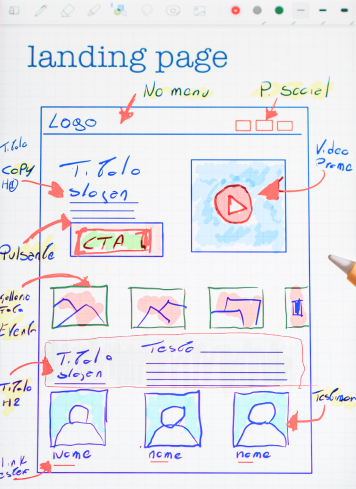 landing page
No menu P. social
Logo
Titolo
COPY
H1
Titolo
slogan
Video
Promo
Pulsante
CTA
galleria
Foto
Evento
Titolo Testo
slogan
Titolo
H2
Testimon
Nome nome nome
Link